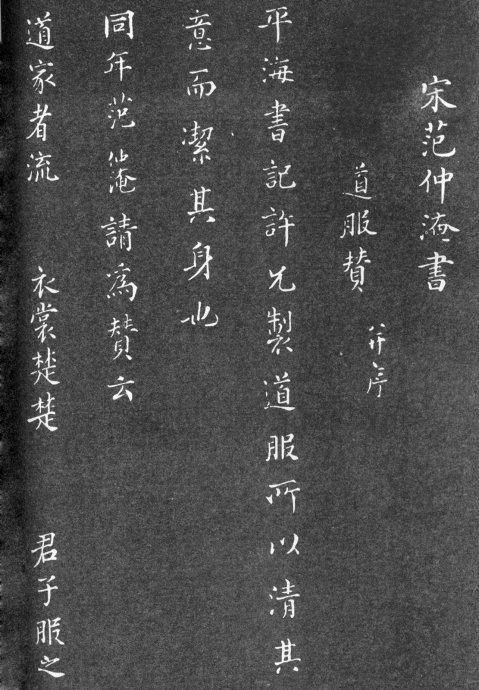 宋范仲淹書
道服赞 并序
平海書記許兄製道服所以清其
意而潔其身也
同年范仲淹請為赞云
道家者流 衣裳楚楚 君子服之